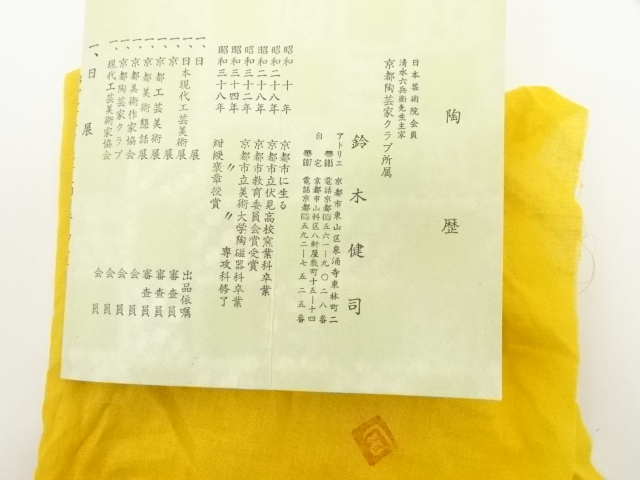 陶歴
日本芸術院会員
清水六兵衛先生主宰
京都陶芸家クラブ所属
鈴木健司
アトリエ 京都市東山区泉涌寺東林町二
電話京都五六一―九〇二八番
自宅 京都市山科区八軒屋敷町十五―十四
電話京都五九二―七五二五番
昭和十年 京都市に生る
昭和二十八年 京都市立伏見高校窯業科卒業
昭和二十八年 京都市教育委員会賞受賞
昭和三十二年 京都市立美術大学陶磁器科卒業
昭和三十四年 〃 〃 専攻科修了
昭和三十八年 紺綬褒章授賞
一、日展
一、日本現代工芸美術展 出品依嘱
一、京展 審査員
一、京都工芸美術展 審査員
一、京都美術懇話展 会員
一、京都美術作家協会 会員
一、京都陶芸家クラブ 会員
一、現代工芸美術家協会 会員
一、日展